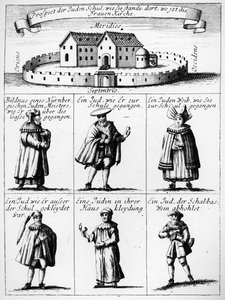 Prospect der Juden Schul, wie sie stande, dort, wo jzt die
Frauen Kirche.
Meridies
Oriens
Occidens
Septentrio.
Bildnus eines Nürnber
gischen Juden Musters,
wie er über die
Gasse gegangen
Ein Jud, wie er zur
Schule gegangen.
Ein Juden Weib, wie sie
zur Schul gegangen
Ein Jud wie er ausser
der Schul gekleydet
war
Eine Jüdin in ihrer
Haus kleydung.
Ein Jud, der Schabbas
Wein abhohlet.